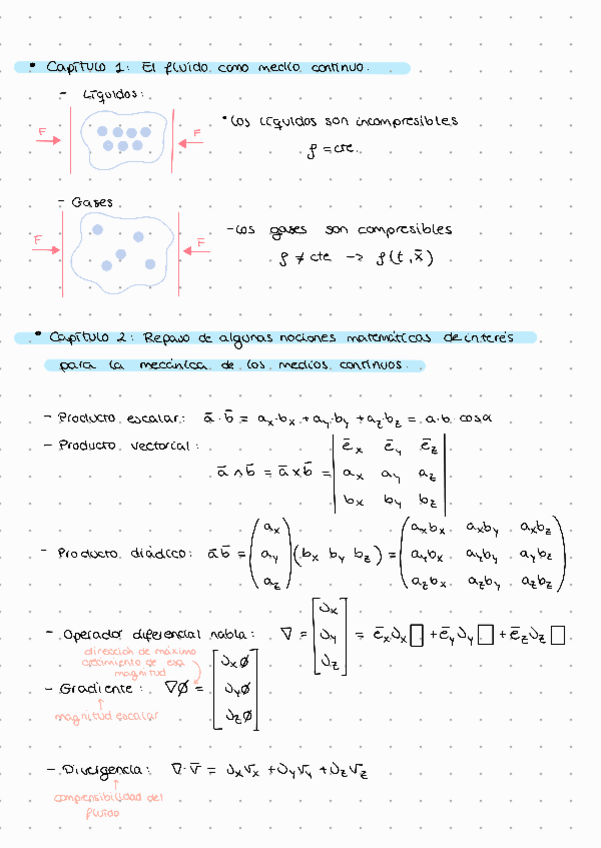 • Capítulo 1: El fluido como medio continuo.
- Líquidos:
F F
• Los líquidos son incompresibles
ρ = cte.
- Gases
F F̄
- Los gases son compresibles
ρ ≠ cte → ρ(t, x̄)
• Capítulo 2: Repaso de algunas nociones matemáticas de interés
para la mecánica de los medios continuos.
- Producto escalar: ā · b̄ = ax·bx + ay·by + az·bz = a·b cosα
- Producto vectorial:
ēx ēy ēz
ā ∧ b̄ = ā × b̄ = ax ay az
bx by bz
ax axbx axby axbz
- Producto diádico: ā b̄ = ay (bx by bz) = aybx ayby aybz
az azbx azby azbz
∂x
- Operador diferencial nabla: ∇ = ∂y = ēx∂x□ + ēy∂y□ + ēz∂z□
∂z
dirección de máximo
crecimiento de esa
magnitud
∂xø
- Gradiente: ∇ø = ∂yø
∂zø
magnitud escalar
- Divergencia: ∇·v̄ = ∂xvx + ∂yvy + ∂zvz
comprensibilidad del
fluido